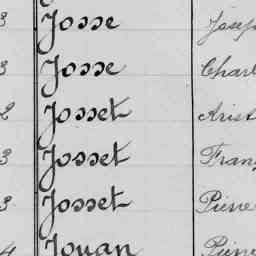 3 Josse Josep
3 Josse Charl
2 Josset Arist
3 Josset Franç
3 Josset Pierre
4 Jouan Pierre